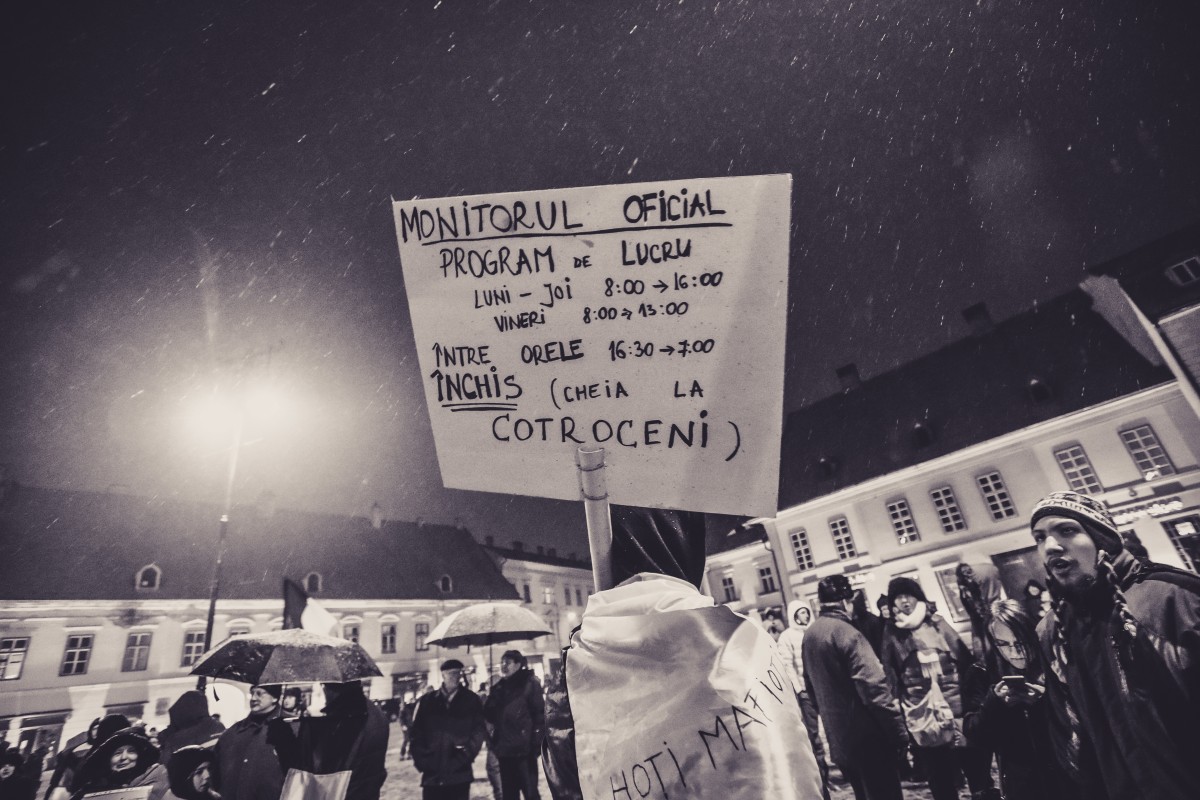 MONITORUL OFICIAL
PROGRAM DE LUCRU
LUNI - JOI 8:00 → 16:00
VINERI 8:00 → 13:00
ÎNTRE ORELE 16:30 → 7:00
ÎNCHIS (CHEIA LA
COTROCENI)
HOȚI MAFIOȚI